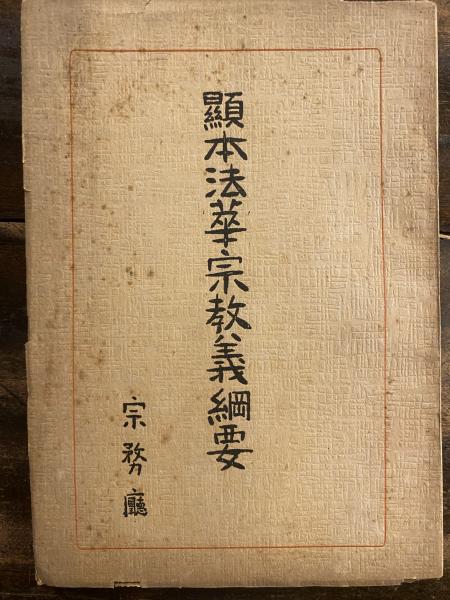 顯本法華宗教義綱要
宗務廳